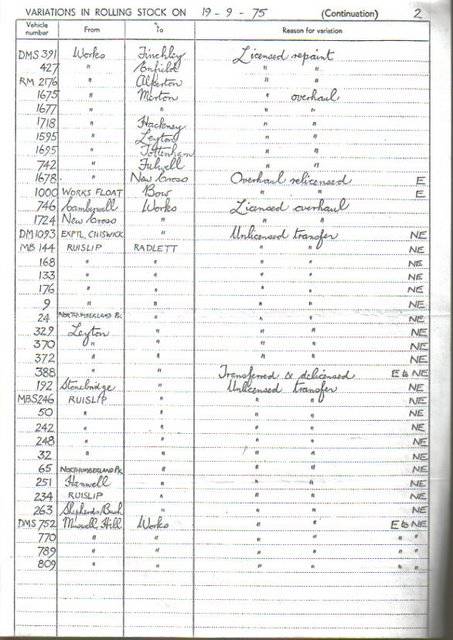 VARIATIONS IN ROLLING STOCK ON 19-9-75 (Continuation) 2
Vehicle number From To Reason for variation
DMS 391 Works Finchley Licensed repaint
427 " Enfield " "
RM 2176 " Alperton " "
1675 " Merton " overhaul
1677 " " " "
1718 " Hackney " "
1595 " Leyton " "
1695 " Tottenham " "
742 " Fulwell " "
1678 " New Cross Overhaul relicensed E
1000 WORKS FLOAT Bow " " E
746 Camberwell Works Licensed overhaul
1724 New Cross " " "
DM 1093 EXPTL CHISWICK " Unlicensed transfer NE
MB 144 RUISLIP RADLETT " " NE
168 " " " " NE
133 " " " " NE
176 " " " " NE
9 " " " " NE
24 NORTHUMBERLAND PK " " " NE
329 Leyton " " " NE
370 " " " " NE
372 " " " " NE
388 " " Transferred & delicensed E to NE
192 Stonebridge " Unlicensed transfer NE
MBS 246 RUISLIP " " " NE
50 " " " " NE
242 " " " " NE
248 " " " " NE
32 " " " " NE
65 NORTHUMBERLAND PK " " " NE
251 Hanwell " " " NE
234 RUISLIP " " " NE
263 Shepherds Bush " " " NE
DMS 752 Muswell Hill Works " " E to NE
770 " " " " " "
789 " " " " " "
809 " " " " " "